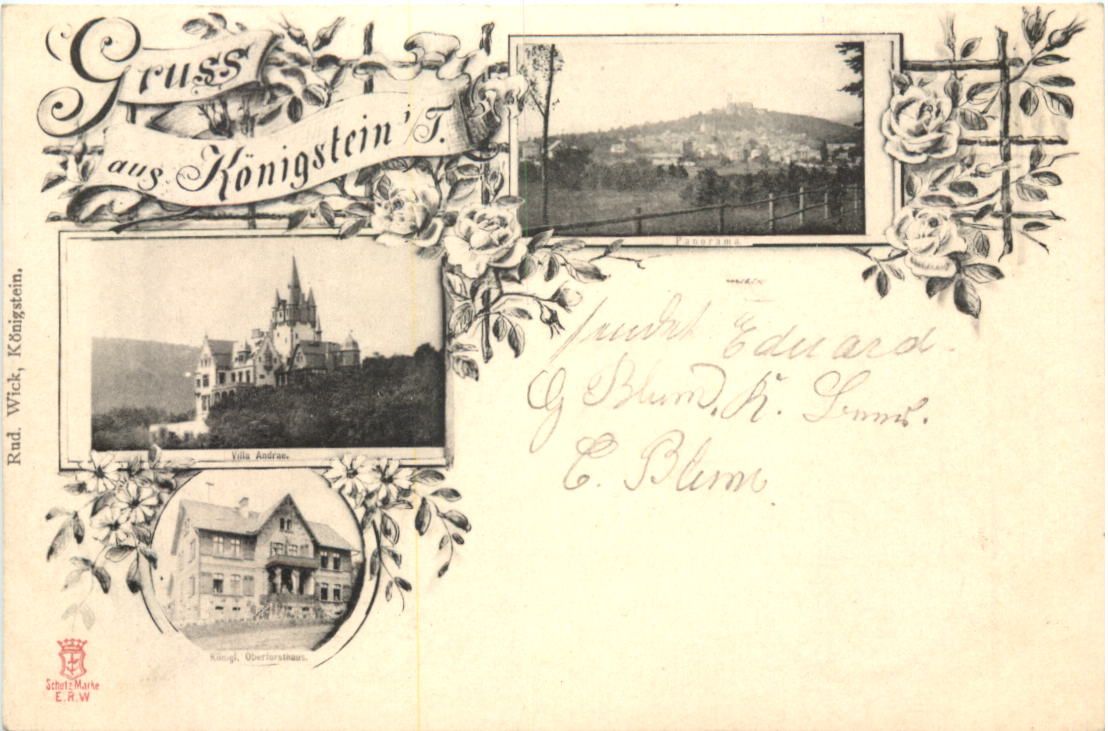 Gruss
aus Königstein i/T.
Panorama
Villa Andrae.
Königl. Oberforsthaus.
Rud. Wick, Königstein.
sendet Eduard.
G Blum, K.
E. Blum
Schutz-Marke
E.R.W